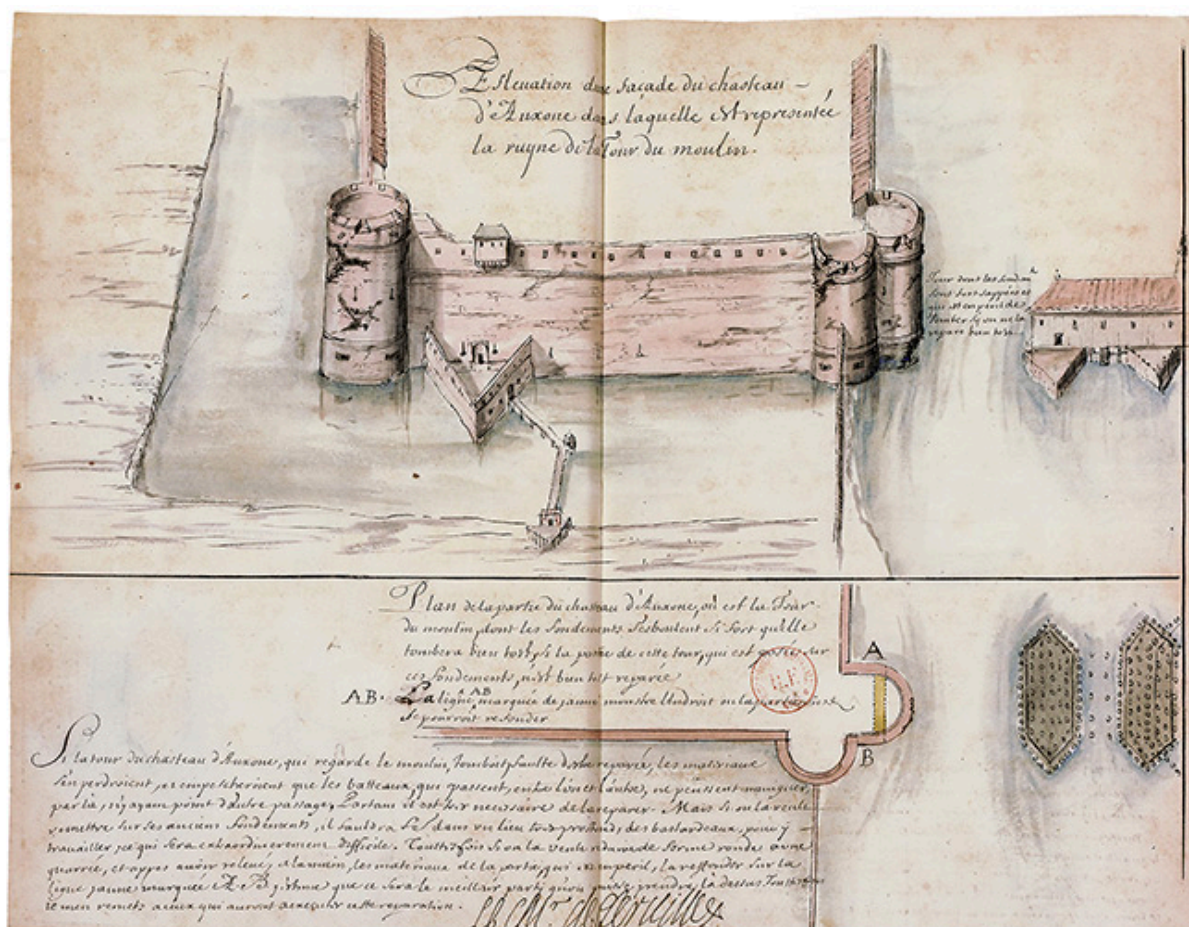 Esleuation d'une façade du chasteau –
d'Auxone dans laquelle est representée
la ruyne de la Tour du moulin.
Tour dont les fondem.ts
sont fort sappées et
qui est en peril de
tomber sy on ne la
repare bien tost
Plan de la partie du chasteau d'Auxone, où est la Tour
du moulin, dont les fondements s'esboulent si fort qu'elle
tombera bien tost, si la partie de cette tour, qui est posée sur
ces fondements, n'est bien tost reparée
A
AB. La ligne, AB marquée de jaune monstre l'endroit ou la
se pourroit refonder
B
R.F.
Si la tour du chasteau d'Auxone, qui regarde le moulin, tomboit faulte d'estre reparée, les materiaux
s'en perdroient, et empescheroient que les batteaux, qui passent, entre l'un et l'autre, ne peussent nauiguer,
par là, n'y ayant point d'autre passage, Partant il est necessaire de la reparer. Mais si on la veult
remettre sur ses anciens fondements, il fauldra des bastardeaux, pour y
trauailler, ce qui sera extraordinerement difficile. Touttefois si on la veult de forme ronde
quarrée, et apres auoir releué, a la main, les materiaux de la partie, qui en peril, la reffonder sur la
ligne jaune marquée A B, j'estime que ce sera le meilleur party qu'on puisse prendre, la dessus
ie m'en remets a ceux qui auront a executer cette reparation.